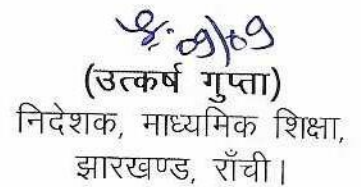 09/09
(उत्कर्ष गुप्ता)
निदेशक, माध्यमिक शिक्षा,
झारखण्ड, राँची।